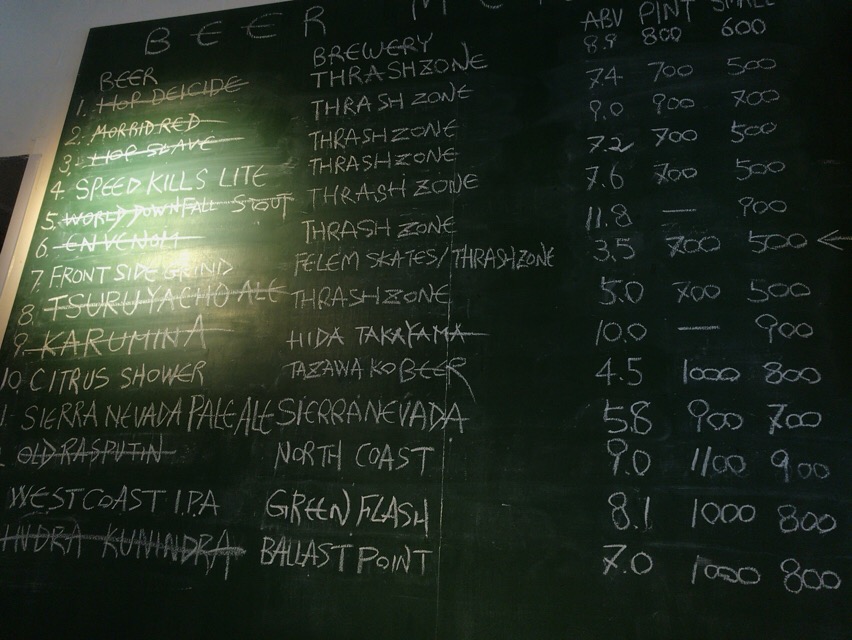 BEER
BEER BREWERY ABV PINT SMALL
1. HOP DEICIDE THRASHZONE 8.9 800 600
2. MORBID RED THRASHZONE 7.4 700 500
3. HOP SLAVE THRASHZONE 9.0 900 700
4. SPEED KILLS LITE THRASHZONE 7.2 700 500
5. WORLD DOWNFALL STOUT THRASHZONE 7.6 700 500
6. ENVENOM THRASHZONE 11.8 — 900
7. FRONT SIDE GRIND FELEM SKATES/THRASHZONE 3.5 700 500 ←
8. TSURUYACHO ALE THRASHZONE 5.0 700 500
9. KARUMINA HIDA TAKAYAMA 10.0 — 900
10. CITRUS SHOWER TAZAWAKO BEER 4.5 1000 800
1. SIERRA NEVADA PALE ALE SIERRA NEVADA 5.8 900 700
OLD RASPUTIN NORTH COAST 9.0 1100 900
WEST COAST I.P.A GREEN FLASH 8.1 1000 800
INDRA KUNINDRA BALLAST POINT 7.0 1000 800